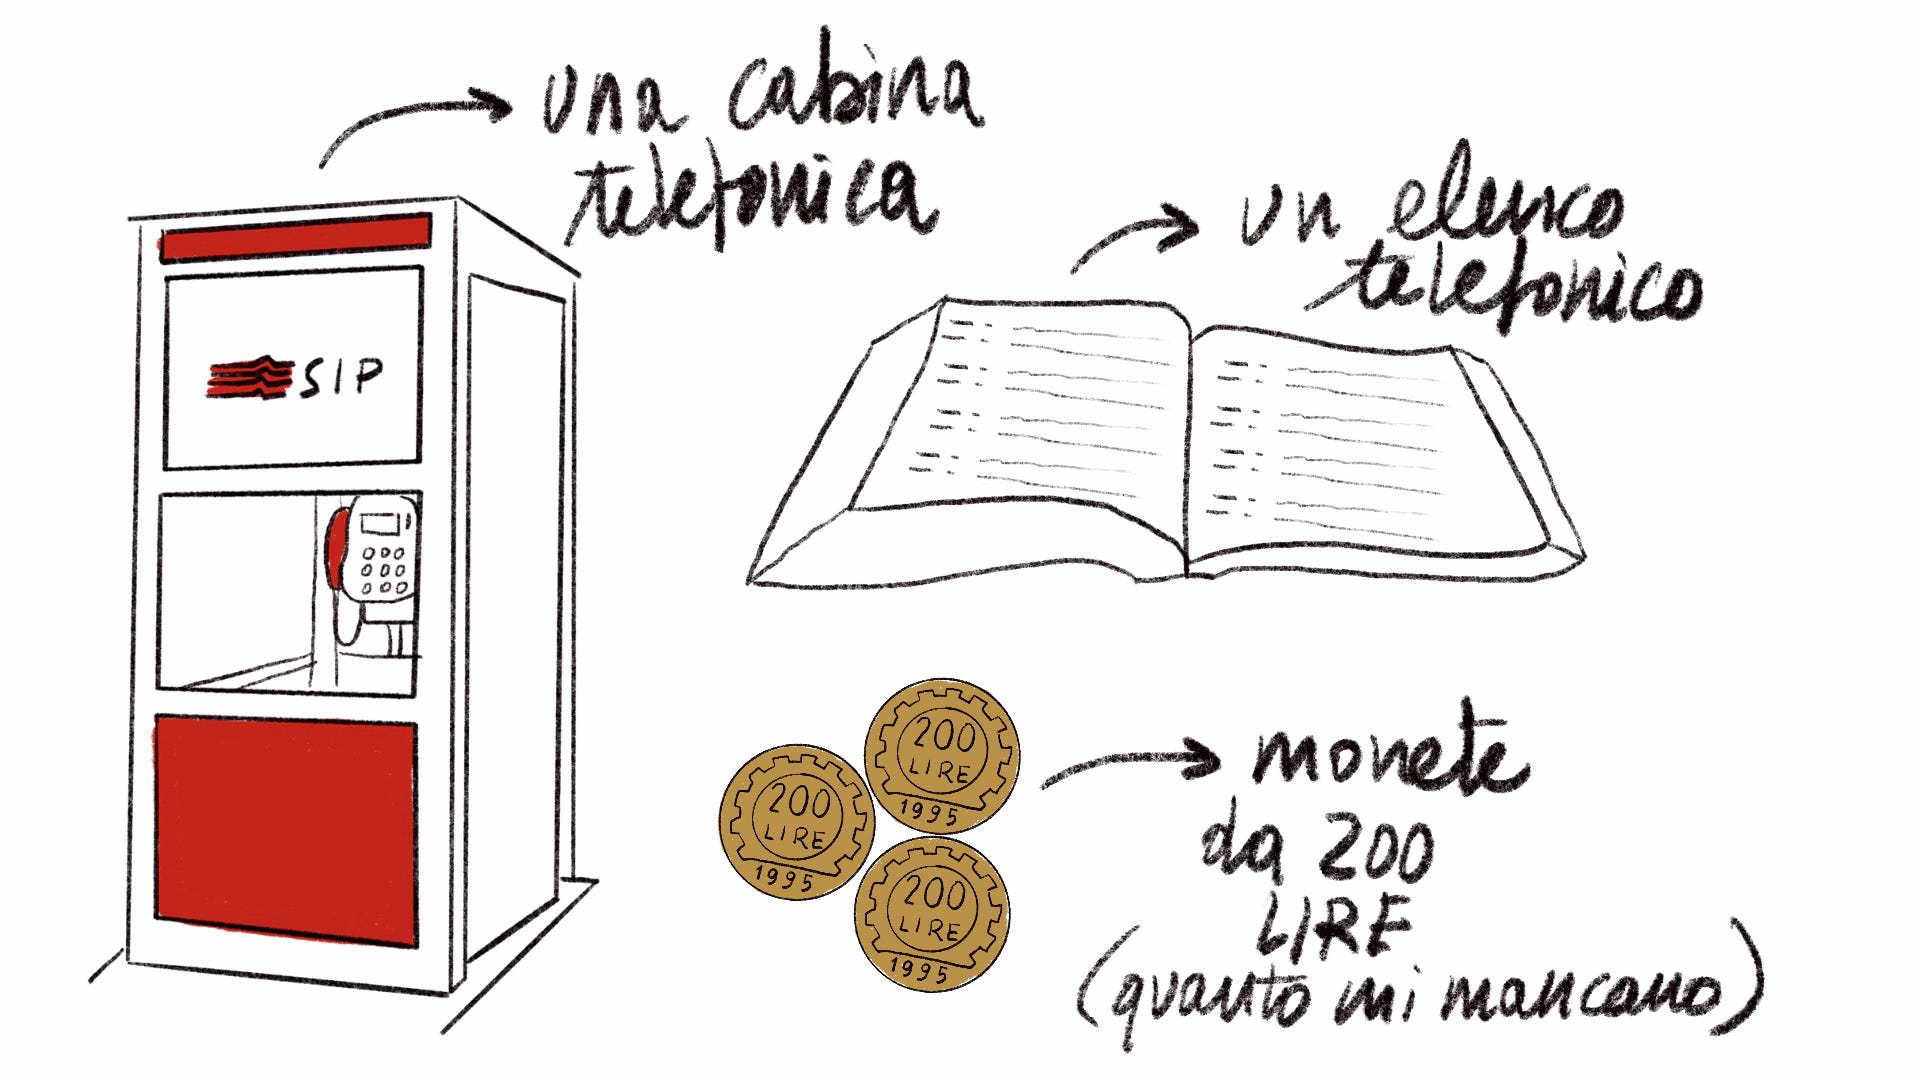 una cabina
telefonica
un elenco
telefonico
SIP
200
LIRE
1995
200
LIRE
1995
200
LIRE
1995
monete
da 200
LIRE
(quanto mi mancano)